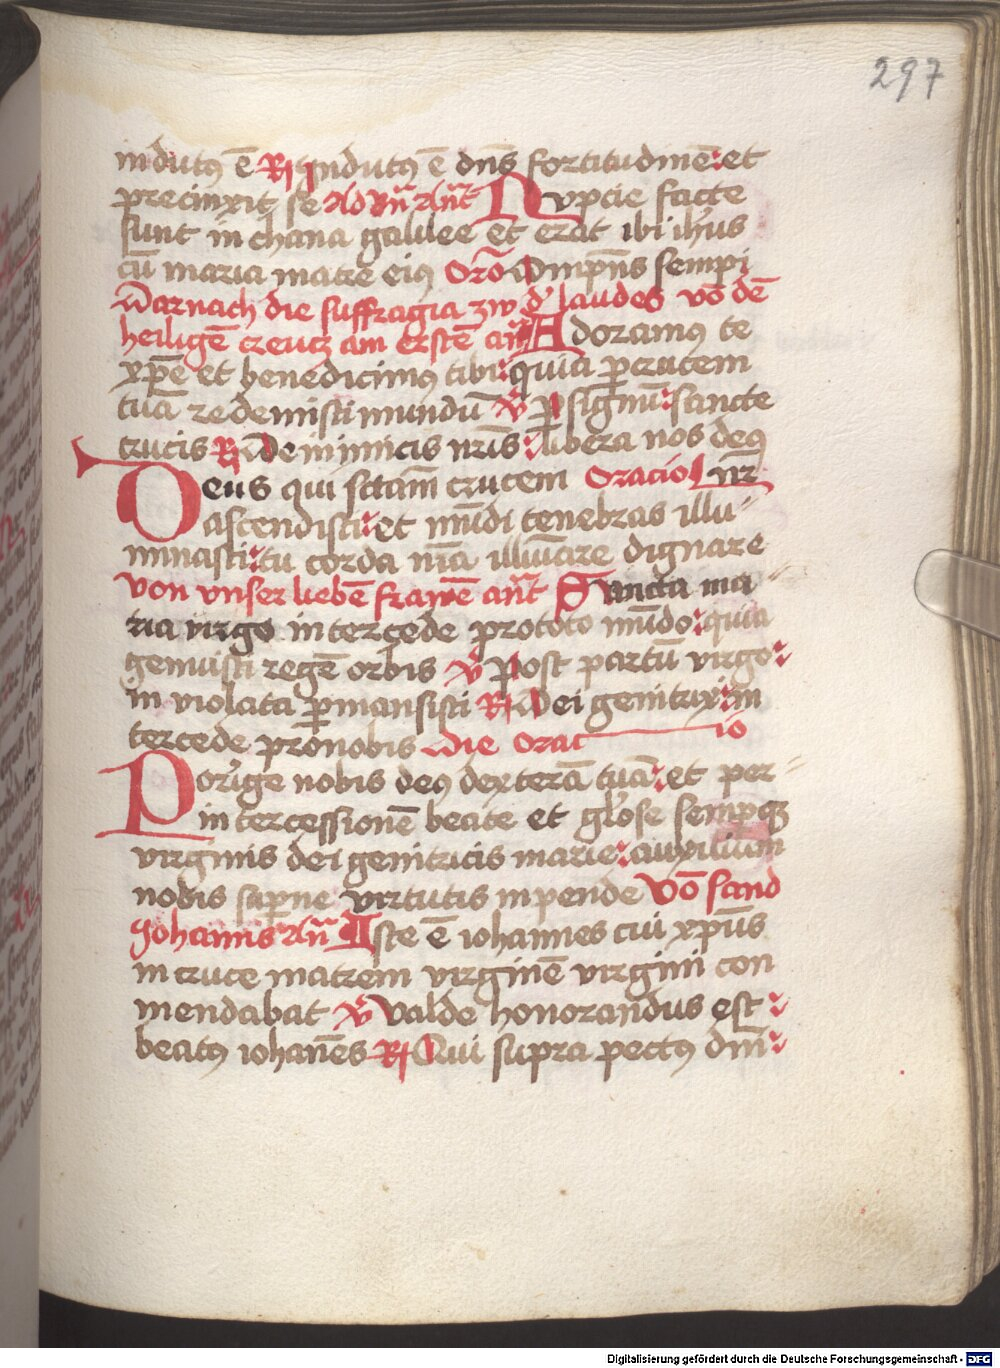 297
indutꝯ ē R Indutꝯ ē dn̄s fortitudinē : et
precinxit se Ad Bn̄ An̄t Nvptie facte
sunt in chana galilee et erat ibi ihus
cū maria matre eiꝯ Orō Omnpn̄s sempi
Darnach die suffragia zw d' laudes vō dē
heiligē creutz am erstē an̄ Adoramꝯ te
xp̄e et benedicimꝯ tibi : quia ꝑ crucem
tuā redemisti mundū V̄ ꝑ signū : sancte
crucis R De inimicis nr̄is : libera nos deꝯ
Deus qui sctām crucem Oracio nr̄
ascendisti : et mūdi tenebras illu-
minasti : tu corda nr̄a illuīare dignare
von vnser liebē frawē an̄t Sancta ma-
ria virgo intercede pro toto mūdo : quia
genuisti regē orbis V̄ Post partū virgo :
in violata ꝑmansisti R Dei genitrix : in
tercede pro nobis Die Oracio
Porige nobis deꝯ dexterā tuā : et per-
intercessionē beate et glōse sempqꝫ
virginis dei genitricis marie : auxilium
nobis saꝑne virtutis inpende Vō sand
Johannis An̄ Iste ē iohannes cui xpūs
in cruce matrem virginē virgini con
mendabat V̄ Valde honorandus est :
beatꝯ iohan̄es R Qui supra pectꝯ dn̄i :
Digitalisierung gefördert durch die Deutsche Forschungsgemeinschaft - DFG